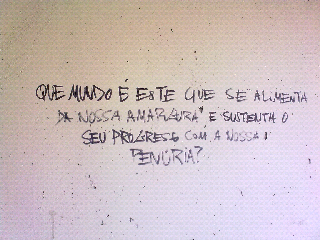 QUE MUNDO É ESTE QUE SE ALIMENTA
DA NOSSA AMARGURA E SUSTENTA O
SEU PROGRESSO COM A NOSSA
PENÚRIA?